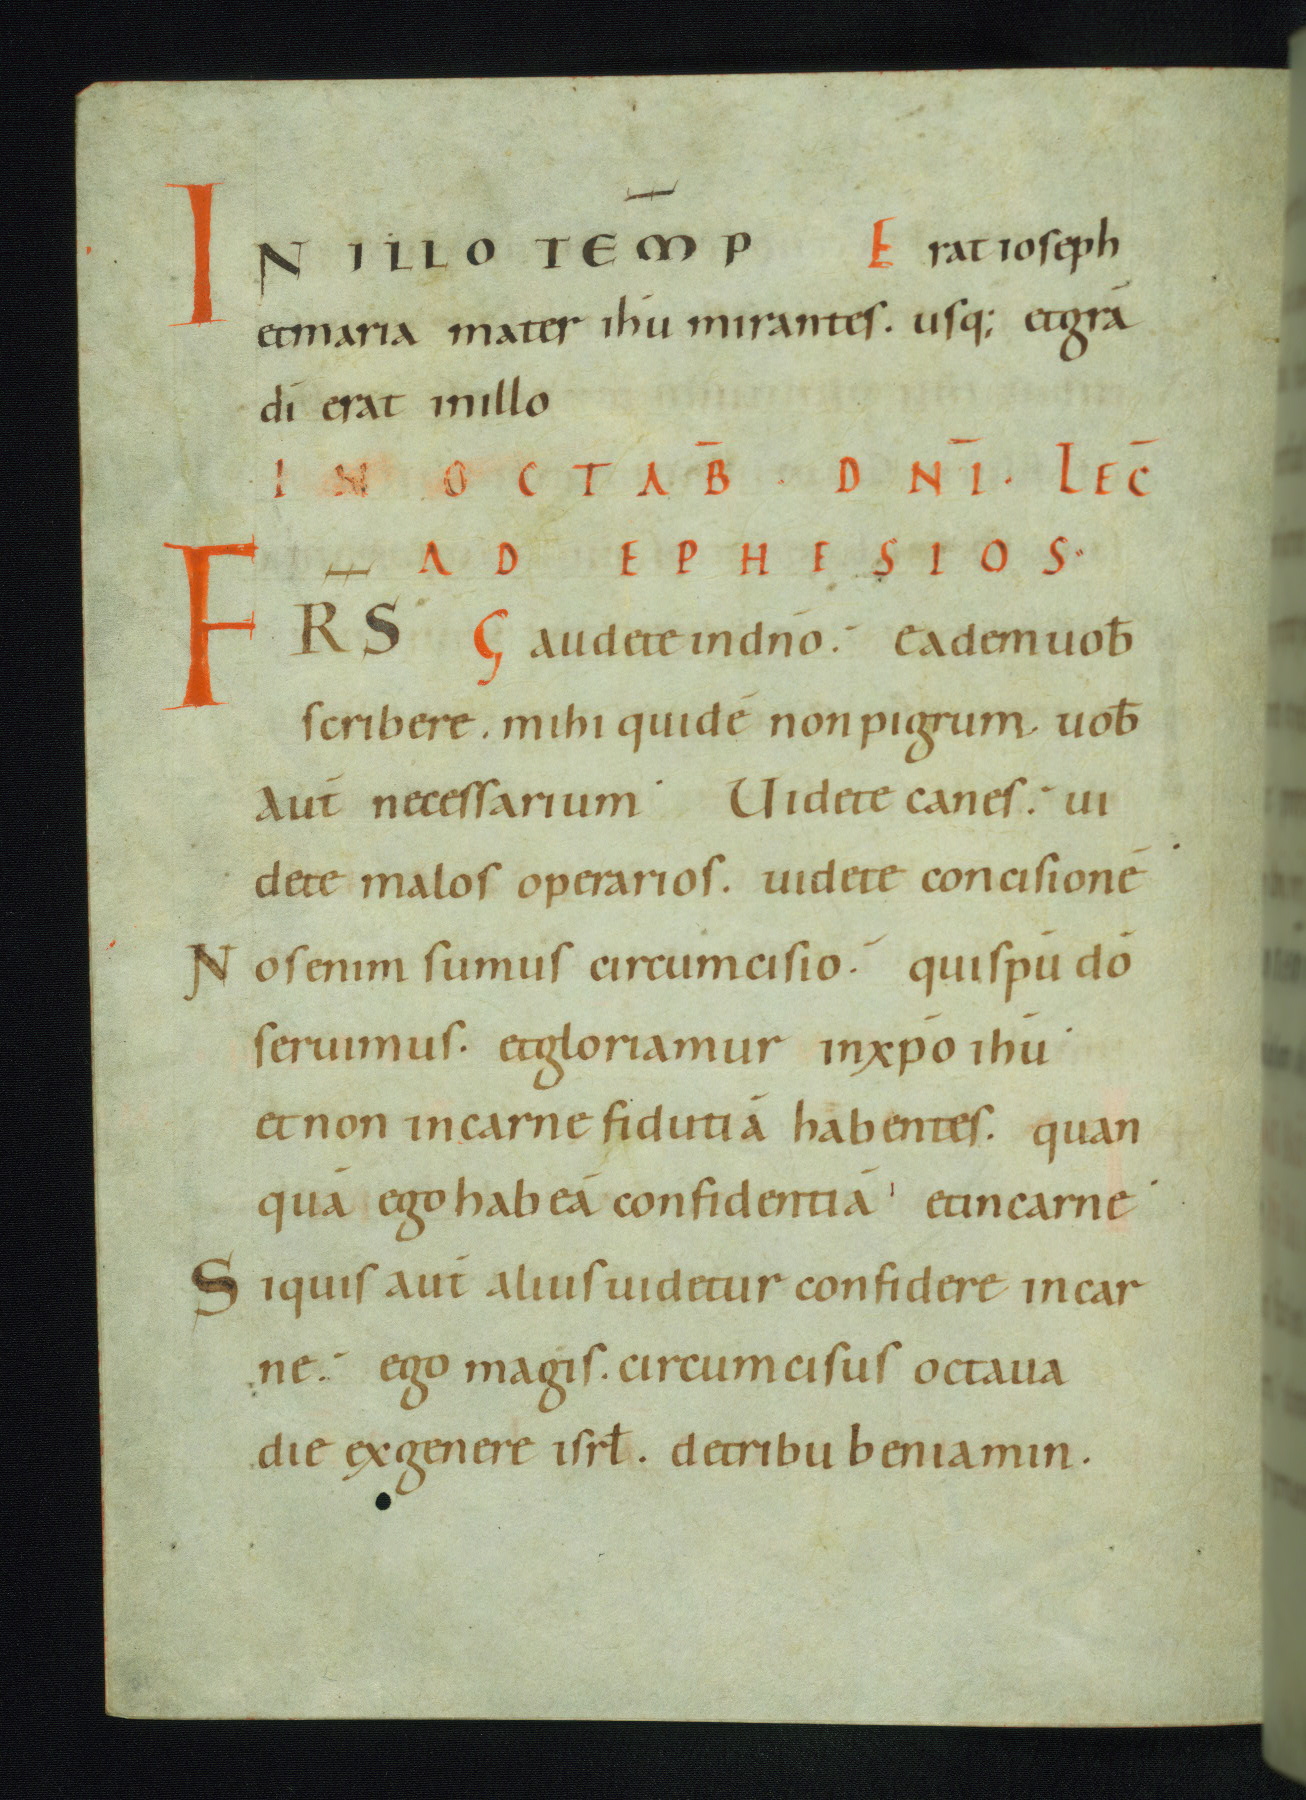 IN ILLO TEM̄P Erat ioseph
et maria mater ihū mirantes. usq; et grā
dī erat in illo
IN OCTAB̄. DNĪ. LEC̄
AD EPHESIOS.
FR̄S Gaudete in dnō. Eadem uob̄
scribere. mihi quidē non pigrum. uob̄
aut̄ necessarium. Uidete canes. ui
dete malos operarios. uidete concisionē.
Nos enim sumus circumcisio. qui spū dō
seruimus. et gloriamur in xpō ihū.
et non in carne fidutiā habentes. quan
quā ego habeā confidentiā et in carne.
Si quis aut̄ alius uidetur confidere in car
ne. ego magis. circumcisus octaua
die ex genere isrł. de tribu beniamin.